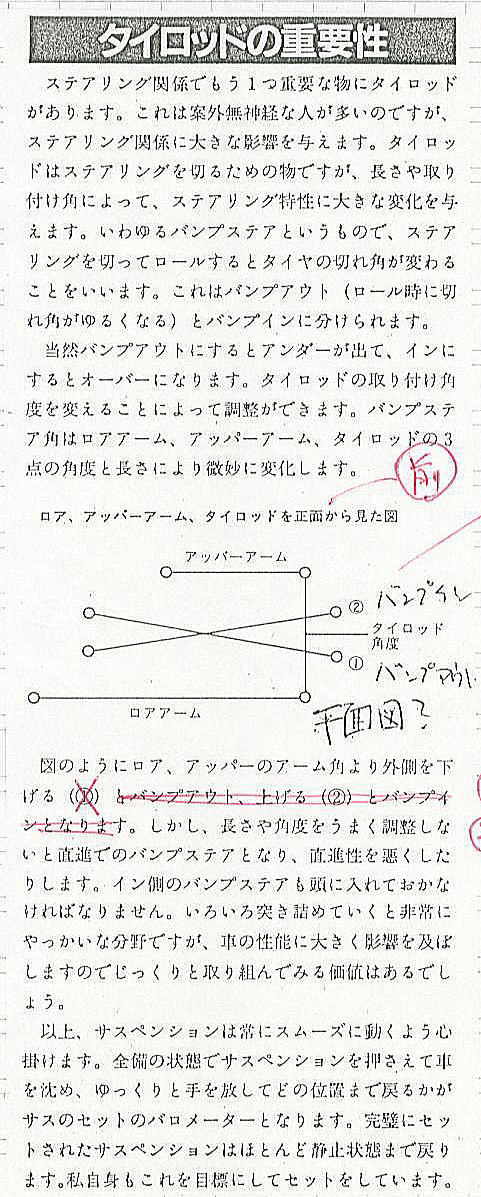 タイロッドの重要性
ステアリング関係でもう１つ重要な物にタイロッド
があります。これは案外無神経な人が多いのですが、
ステアリング関係に大きな影響を与えます。タイロッ
ドはステアリングを切るための物ですが、長さや取り
付け角によって、ステアリング特性に大きな変化を与
えます。いわゆるバンプステアというもので、ステア
リングを切ってロールするとタイヤの切れ角が変わる
ことをいいます。これはバンプアウト（ロール時に切
れ角がゆるくなる）とバンプインに分けられます。
当然バンプアウトにするとアンダーが出て、インに
するとオーバーになります。タイロッドの取り付け角
度を変えることによって調整ができます。バンプステ
ア角はロアアーム、アッパーアーム、タイロッドの３
点の角度と長さにより微妙に変化します。
前
ロア、アッパーアーム、タイロッドを正面から見た図
アッパーアーム
② バンプイン
タイロッド
角度
① バンプアウト
ロアアーム
平面図？
図のようにロア、アッパーのアーム角より外側を下
げる（①）とバンプアウト、上げる（②）とバンプイ
ンとなります。しかし、長さや角度をうまく調整しな
いと直進でのバンプステアとなり、直進性を悪くした
りします。イン側のバンプステアも頭に入れておかな
ければなりません。いろいろ突き詰めていくと非常に
やっかいな分野ですが、車の性能に大きく影響を及ぼ
しますのでじっくりと取り組んでみる価値はあるでし
ょう。
以上、サスペンションは常にスムーズに動くよう心
掛けます。全備の状態でサスペンションを押さえて車
を沈め、ゆっくりと手を放してどの位置まで戻るかが
サスのセットのバロメーターとなります。完璧にセッ
トされたサスペンションはほとんど静止状態まで戻り
ます。私自身もこれを目標にしてセットをしています。